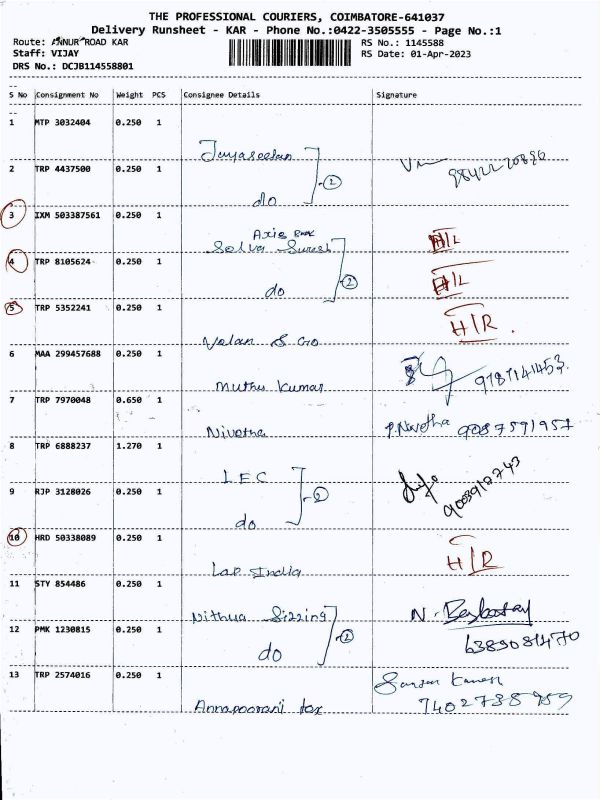 THE PROFESSIONAL COURIERS, COIMBATORE-641037
Delivery Runsheet - KAR - Phone No.:0422-3505555 - Page No.:1
Route: ANNUR ROAD KAR RS No.: 1145588
Staff: VIJAY RS Date: 01-Apr-2023
DRS No.: DCJB114558801
S No Consignment No Weight PCS Consignee Details Signature
1 MTP 3032404 0.250 1
Jayaseelan
2 TRP 4437500 0.250 1
do 2
3 IXM 503387561 0.250 1
Axis Bank
Selva Suresh H/L
4 TRP 8105624 0.250 1
do 2 H/L
5 TRP 5352241 0.250 1
Velan & Co H/R
6 MAA 299457688 0.250 1
Muthu Kumar 9787141453
7 TRP 7970048 0.650 1
Nivetha P.Nivetha 9087591957
8 TRP 6888237 1.270 1
LEC
9 RJP 3128026 0.250 1
do 2 9003912743
10 HRD 50338089 0.250 1
India H/R
11 STY 854486 0.250 1
Nithya Sizzing N.
12 PMK 1230815 0.250 1
do 2 6389081470
13 TRP 2574016 0.250 1
Annapoorani tex 7402738959